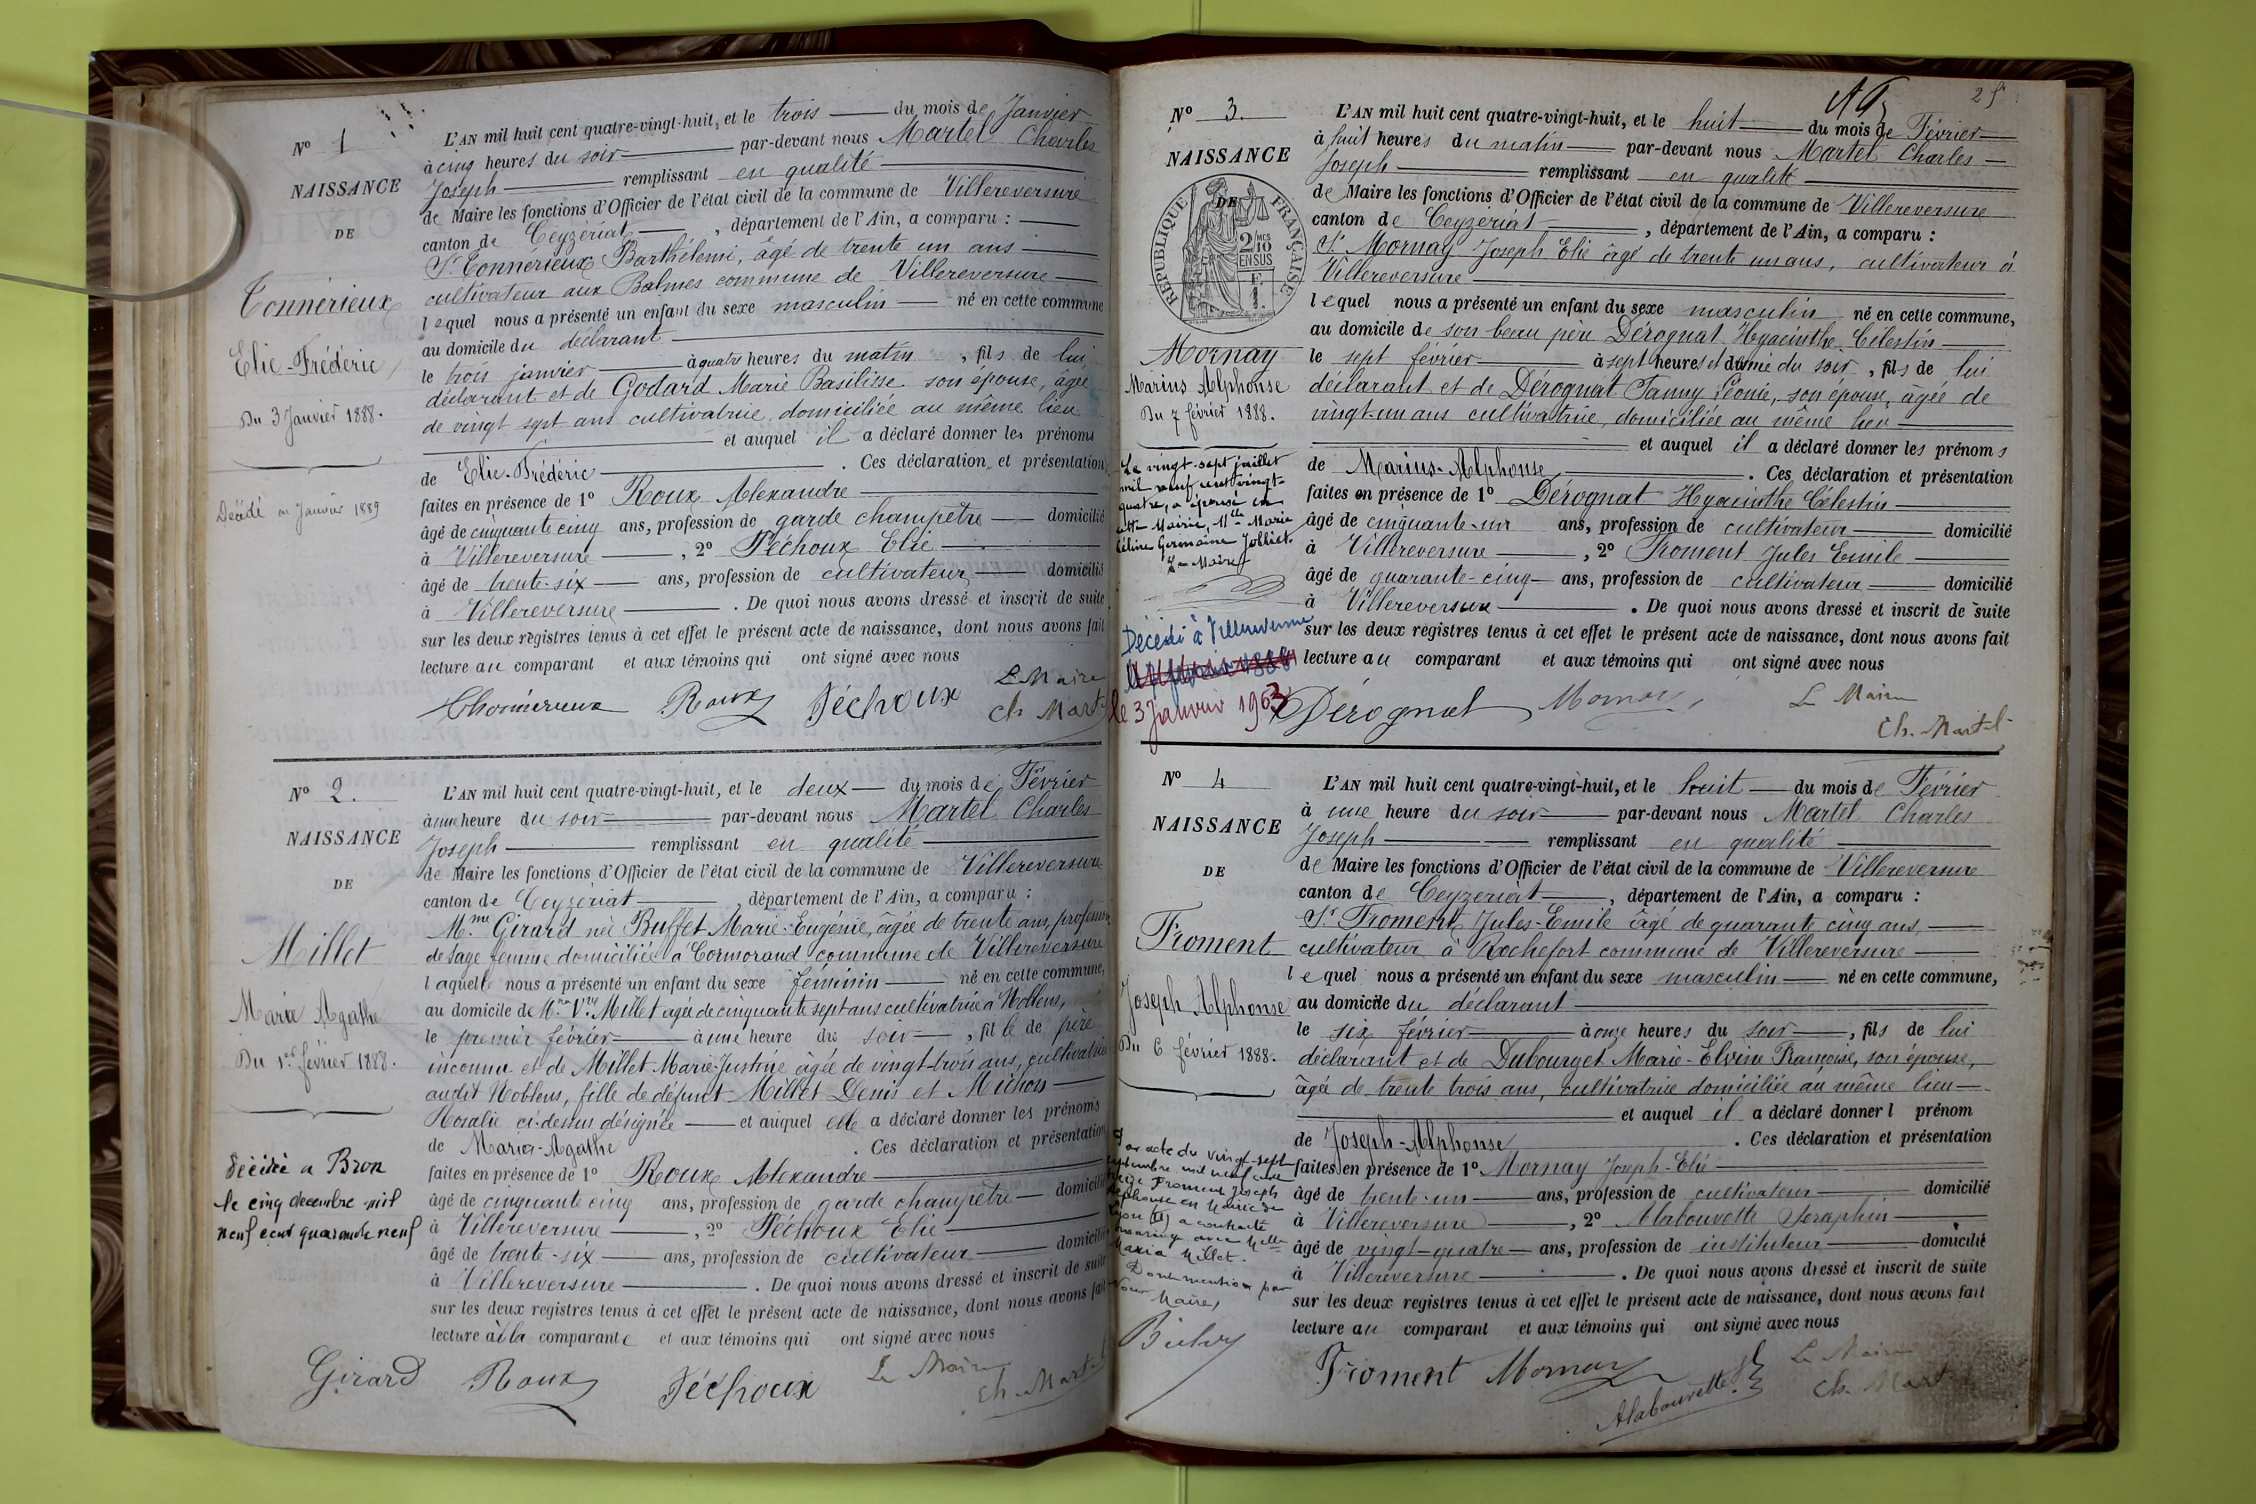 N° 1
NAISSANCE
DE
Tonnerieux
Elie-Frédéric
Du 3 Janvier 1888.
Décédé en Janvier 1889
L'AN mil huit cent quatre-vingt-huit, et le trois du mois de Janvier
à cinq heures du soir par-devant nous Martel Charles
Joseph remplissant en qualité
de Maire les fonctions d'Officier de l'état civil de la commune de Villereversure
canton de Ceyzeriat, département de l'Ain, a comparu :
Sr Tonnerieux Barthélemi, âgé de trente un ans
cultivateur aux Balmes commune de Villereversure
lequel nous a présenté un enfant du sexe masculin né en cette commune
au domicile du déclarant
le trois janvier à quatre heures du matin, fils de lui
déclarant et de Godard Marie Basilisse son épouse, âgée
de vingt sept ans cultivatrice domiciliée au même lieu
et auquel il a déclaré donner les prénoms
de Elie-Frédéric. Ces déclaration et présentation
faites en présence de 1° Roux Alexandre
âgé de cinquante cinq ans, profession de garde champêtre domicilié
à Villereversure, 2° Péchoux Elie
âgé de trente-six ans, profession de cultivateur domicilié
à Villereversure. De quoi nous avons dressé et inscrit de suite
sur les deux registres tenus à cet effet le présent acte de naissance, dont nous avons fait
lecture au comparant et aux témoins qui ont signé avec nous
Le Maire
Roux Péchoux Ch Martel
N° 2.
NAISSANCE
DE
Millet
Marie Agathe
Du 1er février 1888.
décédée a Bron
le cinq decembre mil
neuf cent quarante neuf
L'AN mil huit cent quatre-vingt-huit, et le deux du mois de Février
à une heure du soir par-devant nous Martel Charles
Joseph remplissant en qualité
de Maire les fonctions d'Officier de l'état civil de la commune de Villereversure
canton de Ceyzériat, département de l'Ain, a comparu :
Mme Girard née Buffet Marie-Eugénie, âgée de trente ans, profession
de sage femme domiciliée à Cormorand commune de Villereversure
laquelle nous a présenté un enfant du sexe féminin né en cette commune,
au domicile de Mme Vve Millet agée de cinquante sept ans cultivatrice à Noblens,
le premier février à une heure du soir, fille de père
inconnu et de Millet Marie-Justine âgée de vingt-trois ans, cultivatrice
audit Noblens, fille de défunt Millet Denis et Michon
Rosalie ci-dessus désignée et auquel elle a déclaré donner les prénoms
de Marie-Agathe. Ces déclaration et présentation
faites en présence de 1° Roux Alexandre
âgé de cinquante cinq ans, profession de garde champêtre domicilié
à Villereversure, 2° Péchoux Elie
âgé de trente-six ans, profession de cultivateur domicilié
à Villereversure. De quoi nous avons dressé et inscrit de suite
sur les deux registres tenus à cet effet le présent acte de naissance, dont nous avons fait
lecture à la comparante et aux témoins qui ont signé avec nous
Girard Roux Péchoux Le Maire
Ch. Martel
25
N° 3.
NAISSANCE
DE
RÉPUBLIQUE FRANÇAISE
2/10
EN SUS
Mornay
Marius Alphonse
Du 7 février 1888.
Le vingt-sept juillet
mil neuf cent vingt-
quatre, a épousé en
cette Mairie, Mlle Marie
Céline Germaine Jolliet.
Le Maire
Décédé à Villeurbanne
le 3 Janvier 1963
L'AN mil huit cent quatre-vingt-huit, et le huit du mois de Février
à huit heures du matin par-devant nous Martel Charles
Joseph remplissant en qualité
de Maire les fonctions d'Officier de l'état civil de la commune de Villereversure
canton de Ceyzériat, département de l'Ain, a comparu :
Sr Mornay Joseph Elie âgé de trente un ans, cultivateur à
Villereversure
lequel nous a présenté un enfant du sexe masculin né en cette commune,
au domicile de son beau père Dérognat Hyacinthe Célestin
le sept février à sept heures et demie du soir, fils de lui
déclarant et de Dérognat Fanny Léonie, son épouse, âgée de
vingt-un ans cultivatrice, domiciliée au même lieu
et auquel il a déclaré donner les prénoms
de Marius-Alphonse. Ces déclaration et présentation
faites en présence de 1° Dérognat Hyacinthe Célestin
âgé de cinquante-un ans, profession de cultivateur domicilié
à Villereversure, 2° Froment Jules Emile
âgé de quarante-cinq ans, profession de cultivateur domicilié
à Villereversure. De quoi nous avons dressé et inscrit de suite
sur les deux registres tenus à cet effet le présent acte de naissance, dont nous avons fait
lecture au comparant et aux témoins qui ont signé avec nous
Dérognat Mornay Le Maire
Ch. Martel
N° 4
NAISSANCE
DE
Froment
Joseph Alphonse
Du 6 février 1888.
Par acte du vingt-sept
septembre mil neuf cent
Froment Joseph
Alphonse en Mairie de
Lyon a contracté
mariage avec Melle
Maria Millet.
Dont mention par
Nous Maire,
L'AN mil huit cent quatre-vingt-huit, et le huit du mois de Février
à une heure du soir par-devant nous Martel Charles
Joseph remplissant en qualité
de Maire les fonctions d'Officier de l'état civil de la commune de Villereversure
canton de Ceyzeriat, département de l'Ain, a comparu :
Sr Froment Jules-Emile âgé de quarante cinq ans,
cultivateur à Rochefort commune de Villereversure
lequel nous a présenté un enfant du sexe masculin né en cette commune,
au domicile du déclarant
le six février à onze heures du soir, fils de lui
déclarant et de Dubourget Marie-Elvine Françoise, son épouse,
âgée de trente trois ans, cultivatrice domiciliée au même lieu
et auquel il a déclaré donner l prénom
de Joseph-Alphonse. Ces déclaration et présentation
faites en présence de 1° Mornay Joseph-Elie
âgé de trente-un ans, profession de cultivateur domicilié
à Villereversure, 2° Alabouvette Séraphin
âgé de vingt-quatre ans, profession de instituteur domicilié
à Villereversure. De quoi nous avons dressé et inscrit de suite
sur les deux registres tenus à cet effet le présent acte de naissance, dont nous avons fait
lecture au comparant et aux témoins qui ont signé avec nous
Froment Mornay Alabouvette Le Maire
Ch. Martel